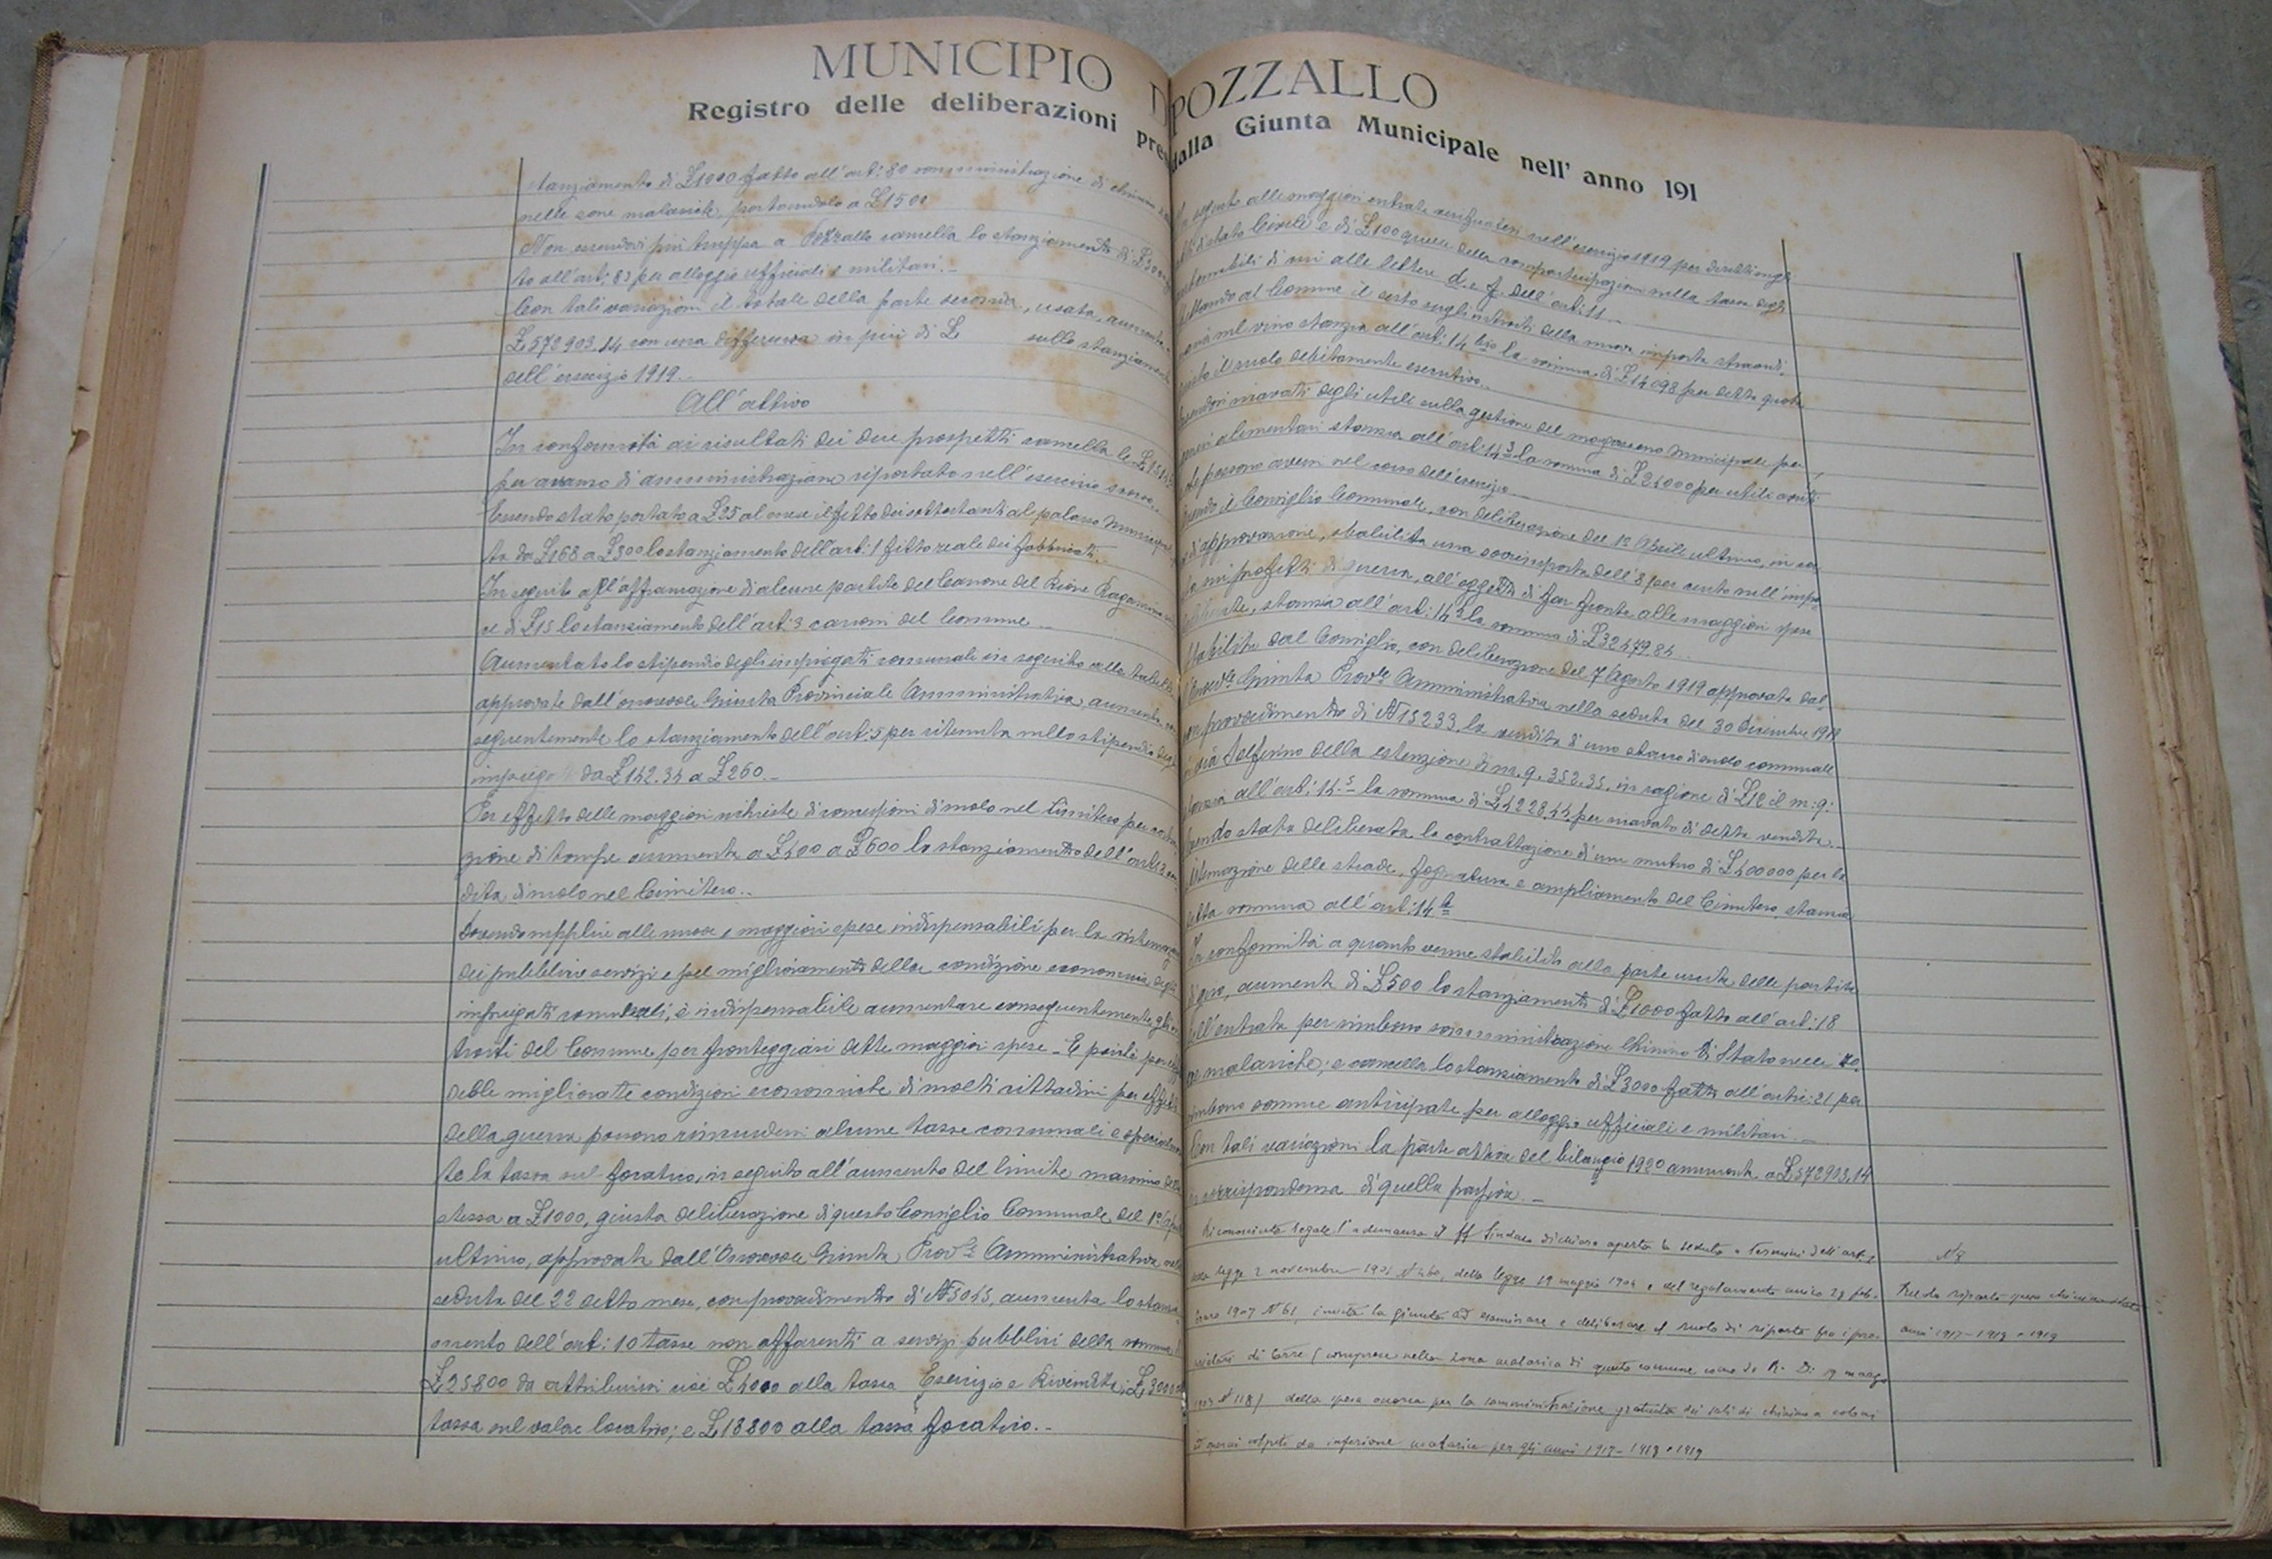 MUNICIPIO D
Registro delle deliberazioni pre
stanziamento di £1000 fatto all'art: 80 somministrazione di chinino
nelle zone malariche, portandolo a £1500
Non essendovi più truppa a Pozzallo cancella lo stanziamento di £3000
to all'art: 83 per alloggio ufficiali e militari._
Con tali variazioni il totale della parte seconda, uscita, aumenta
£572903.14 con una differenza in più di £ sullo stanziamento
dell'esercizio 1919._
All'attivo
In conformità ai risultati dei due prospetti cancella le £
per avanzo di amministrazione riportato nell'esercizio
Essendo stato portato a £25 al mese il fitto dei sottostanti al palazzo Municipale
ta da £168 a £300 lo stanziamento dell'art: 1 fitto reale dei fabbricati.
In seguito all'affrancazione di alcune partite del Canone del Rione
ce di £15 lo stanziamento dell'art: 3 canoni del Comune_
Aumentato lo stipendio degli impiegati comunali in seguito alla tabella
approvate dall'onorevole Giunta Provinciale Amministrativa, aumenta con
seguentemente lo stanziamento dell'art: 5 per ritenuta sullo stipendio degli
impiegati da £142.34 a £260._
Per effetto delle maggiori richieste di concessioni di suolo nel Cimitero per costru
zione di tombe aumenta a £400 a £600 lo stanziamento dell'art:
dita di suolo nel Cimitero._
Dovendo supplire alle nuove e maggiori spese indispensabili per la sistemazione
dei pubblici servizi e pel miglioramento della condizione economica degli
impiegati comunali, è indispensabile aumentare conseguentemente gli in
troiti del Comune per fronteggiare dette maggiori spese_ E poichè per
delle migliorate condizioni economiche di molti cittadini per effetto
della guerra possono rimaneggiarsi alcune tasse comunali e specialmen
te la tassa sul focatico, in seguito all'aumento del limite massimo della
stessa a £1000, giusta deliberazione di questo Consiglio Comunale del 1º Aprile
ultimo, approvata dall'Onorevole Giunta Provle Amministrativa nella
seduta del 22 detto mese, con provvedimento di N 5045, aumenta lo stanzi
amento dell'art: 10 tasse non afferenti a servizi pubblici della somma
£25800 da attribuirsi così £4000 alla tassa Esercizio e Rivendite; £3000
tassa sul valor locativo; e £18800 alla tassa focatico._
POZZALLO
dalla Giunta Municipale nell' anno 191
In seguito alle maggiori entrate verificatesi nell'esercizio 1919 per diritti sugli
atti di stato Civile e di £100 quelle della compartecipazione sulla tassa degli
automobili di cui alle lettere d. e f. dell'art: 11_
Spettando al Comune il sesto sugli introiti della nuova imposta straordi
naria sul vino stanzia all'art: 14 bis la somma di £14098 per detta quota
giusto il ruolo debitamente esecutivo._
Essendosi ricavati degli utili sulla gestione del magazzeno Municipale per
generi alimentari stanzia all'art: 14 3 la somma di £24000 per utili avuti
che possono aversi nel corso dell'esercizio._
Avendo il Consiglio Comunale, con deliberazione del 1º Aprile ultimo, in cor
so d'approvazione, stabilita una sovrimposta dell'8 per cento sull'impo
sta sui profitti di guerra, all'oggetto di far fronte alle maggiori spese
stanzia all'art: 14 4 la somma di £32479.84_
Stabilita dal Consiglio, con deliberazione del 7 Agosto 1919 approvata dal
l'Onorvle Giunta Provle Amministrativa nella seduta del 30 Dicembre 1919
con provvedimento di N 15233 la vendita di uno stacco di suolo comunale
in via Solferino della estenzione di m.q. 352.35, in ragione di £12 il m:q:
stanzia all'art: 14.5 la somma di £4228.44 per ricavato di detta vendita._
Essendo stata deliberata la contrattazione d'un mutuo di £400000 per la
sistemazione delle strade, fognatura e ampliamento del Cimitero, stanzia
detta somma all'art: 14 6
In conformità a quanto venne stabilito alla parte uscita delle partite
di giro, aumenta di £500 lo stanziamento di £1000 fatto all'art: 18
dell'entrata per rimborso somministrazione Chinino di Stato nelle zo
ne malariche; e cancella lo stanziamento di £3000 fatto all'artic: 21 per
rimborso somme anticipate per alloggio ufficiali e militari._
Con tali variazioni la parte attiva del bilancio 1920 aumenta a £572903,14
in corrispondenza di quella passiva._
Riconosciuta legale l'adunanza il ff Sindaco dichiara aperta la seduta e a termini dell'art. 
della legge 2 novembre 1901 N 460, della legge 19 maggio 1904 e del regolamento unico 28 feb-
braio 1907 N 61, invita la giunta ad esaminare e deliberare il ruolo di riparto fra i pro-
prietari di terre (comprese nella zona malarica di questo comune come da R. D. 19 marzo
1903 N 118) della spesa occorsa per la somministrazione gratuita dei sali di chinino a coloni
ed operai colpiti da infezione malarica per gli anni 1917-1918 e 1919
N 8
Ruolo riparto spesa chinino Stato
anni 1917-1918 e 1919